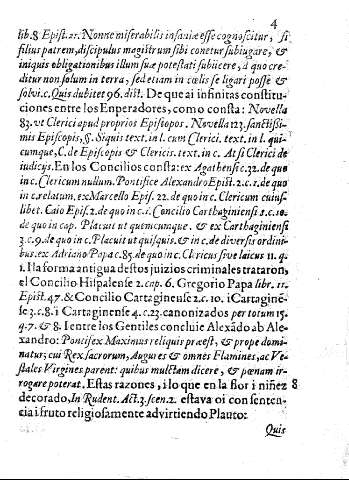 4
lib.8 Epist.21. Nonne miserabilis insaniæ esse cognoscitur, si
filius patrem, discipulus magistrum sibi conetur subiugare, &
iniquis obligationibus illum suæ potestati subijcere, à quo cre-
ditur non solum in terra, sed etiam in cœlis se ligari posse &
solvi. c. Quis dubitet 96. dist. De que ai infinitas constitu-
ciones entre los Enperadores, como consta: Novella
83. vt Clerici apud proprios Episiopos. Novella 123. sanctissi-
mis Episcopis, §. Siquis text. in l. cum Clerici. text. in l. qui-
cumque, C. de Episcopis & Clericis. text. in c. At si Clerici de
iudicijs. En los Concilios consta: ex Agathensi c. 32. de quo
in c. Clericum nullum. Pontifice Alexandro Epist. 2. c. 1. de quo
in c. relatum. ex Marcello Epist. 22. de quo in c. Clericum cuius-
libet. Caio Epist. 2. de quo in c. 1. Concilio Carthaginensi 1. c. 10.
de quo in cap. Placuit ut quemcumque. & ex Carthaginensi
3. c. 9. de quo in c. Placuit ut quisquis. & in c. de diversis ordini-
bus. ex Adriano Papa c. 85. de quo in c. Clericus sive laicus 11. q.
1. I la forma antigua destos juizios criminales trataron,
el Concilio Hispalense 2. cap. 6. Gregorio Papa libr. 11.
Epist. 47. & Concilio Cartaginense 2. c. 10. i Cartagine-
se 3. c. 8. i Cartaginense 4. c. 23. canonizados per totum 15.
q. 7. & 8. I entre los Gentiles concluie Alexãdo ab Ale-
xandro: Pontifex Maximus reliquis præest, & prope domi-
natur; cui Rex sacrorum, Augures & omnes Flamines, ac Ve-
stales Virgines parent: quibus mulctam dicere, & pœnam ir-
rogare poterat. Estas razones, i lo que en la flor i niñez 8
decorado, In Rudent. Act. 3. scen. 2. estava oi con senten-
cia i fruto religiosamente advirtiendo Plauto:
Quis